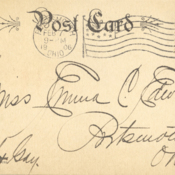 Post Card
FEB 7
9-M
1906
OHIO
Miss Emma C. Edw
Portsmou
O
& Gay.